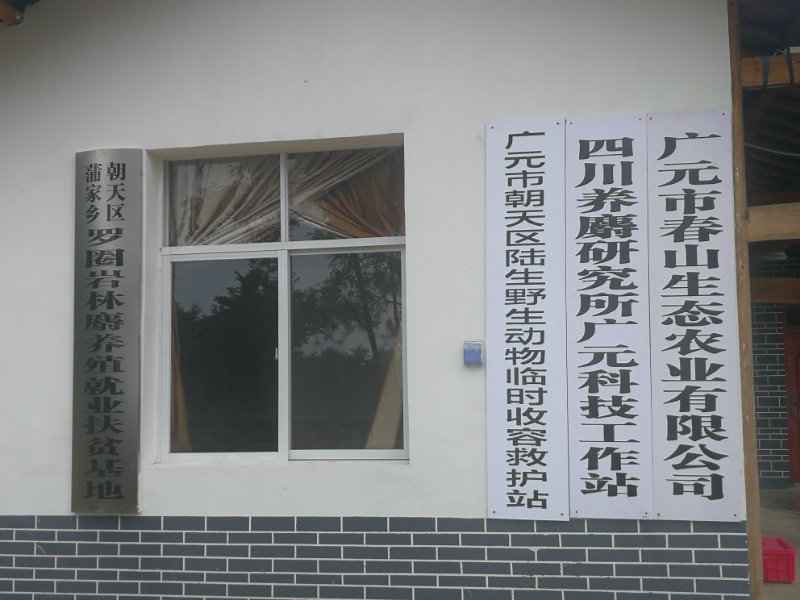 朝天区
蒲家乡
罗圈岩林麝养殖就业扶贫基地
广元市朝天区陆生野生动物临时收容救护站
四川养麝研究所广元科技工作站
广元市春山生态农业有限公司